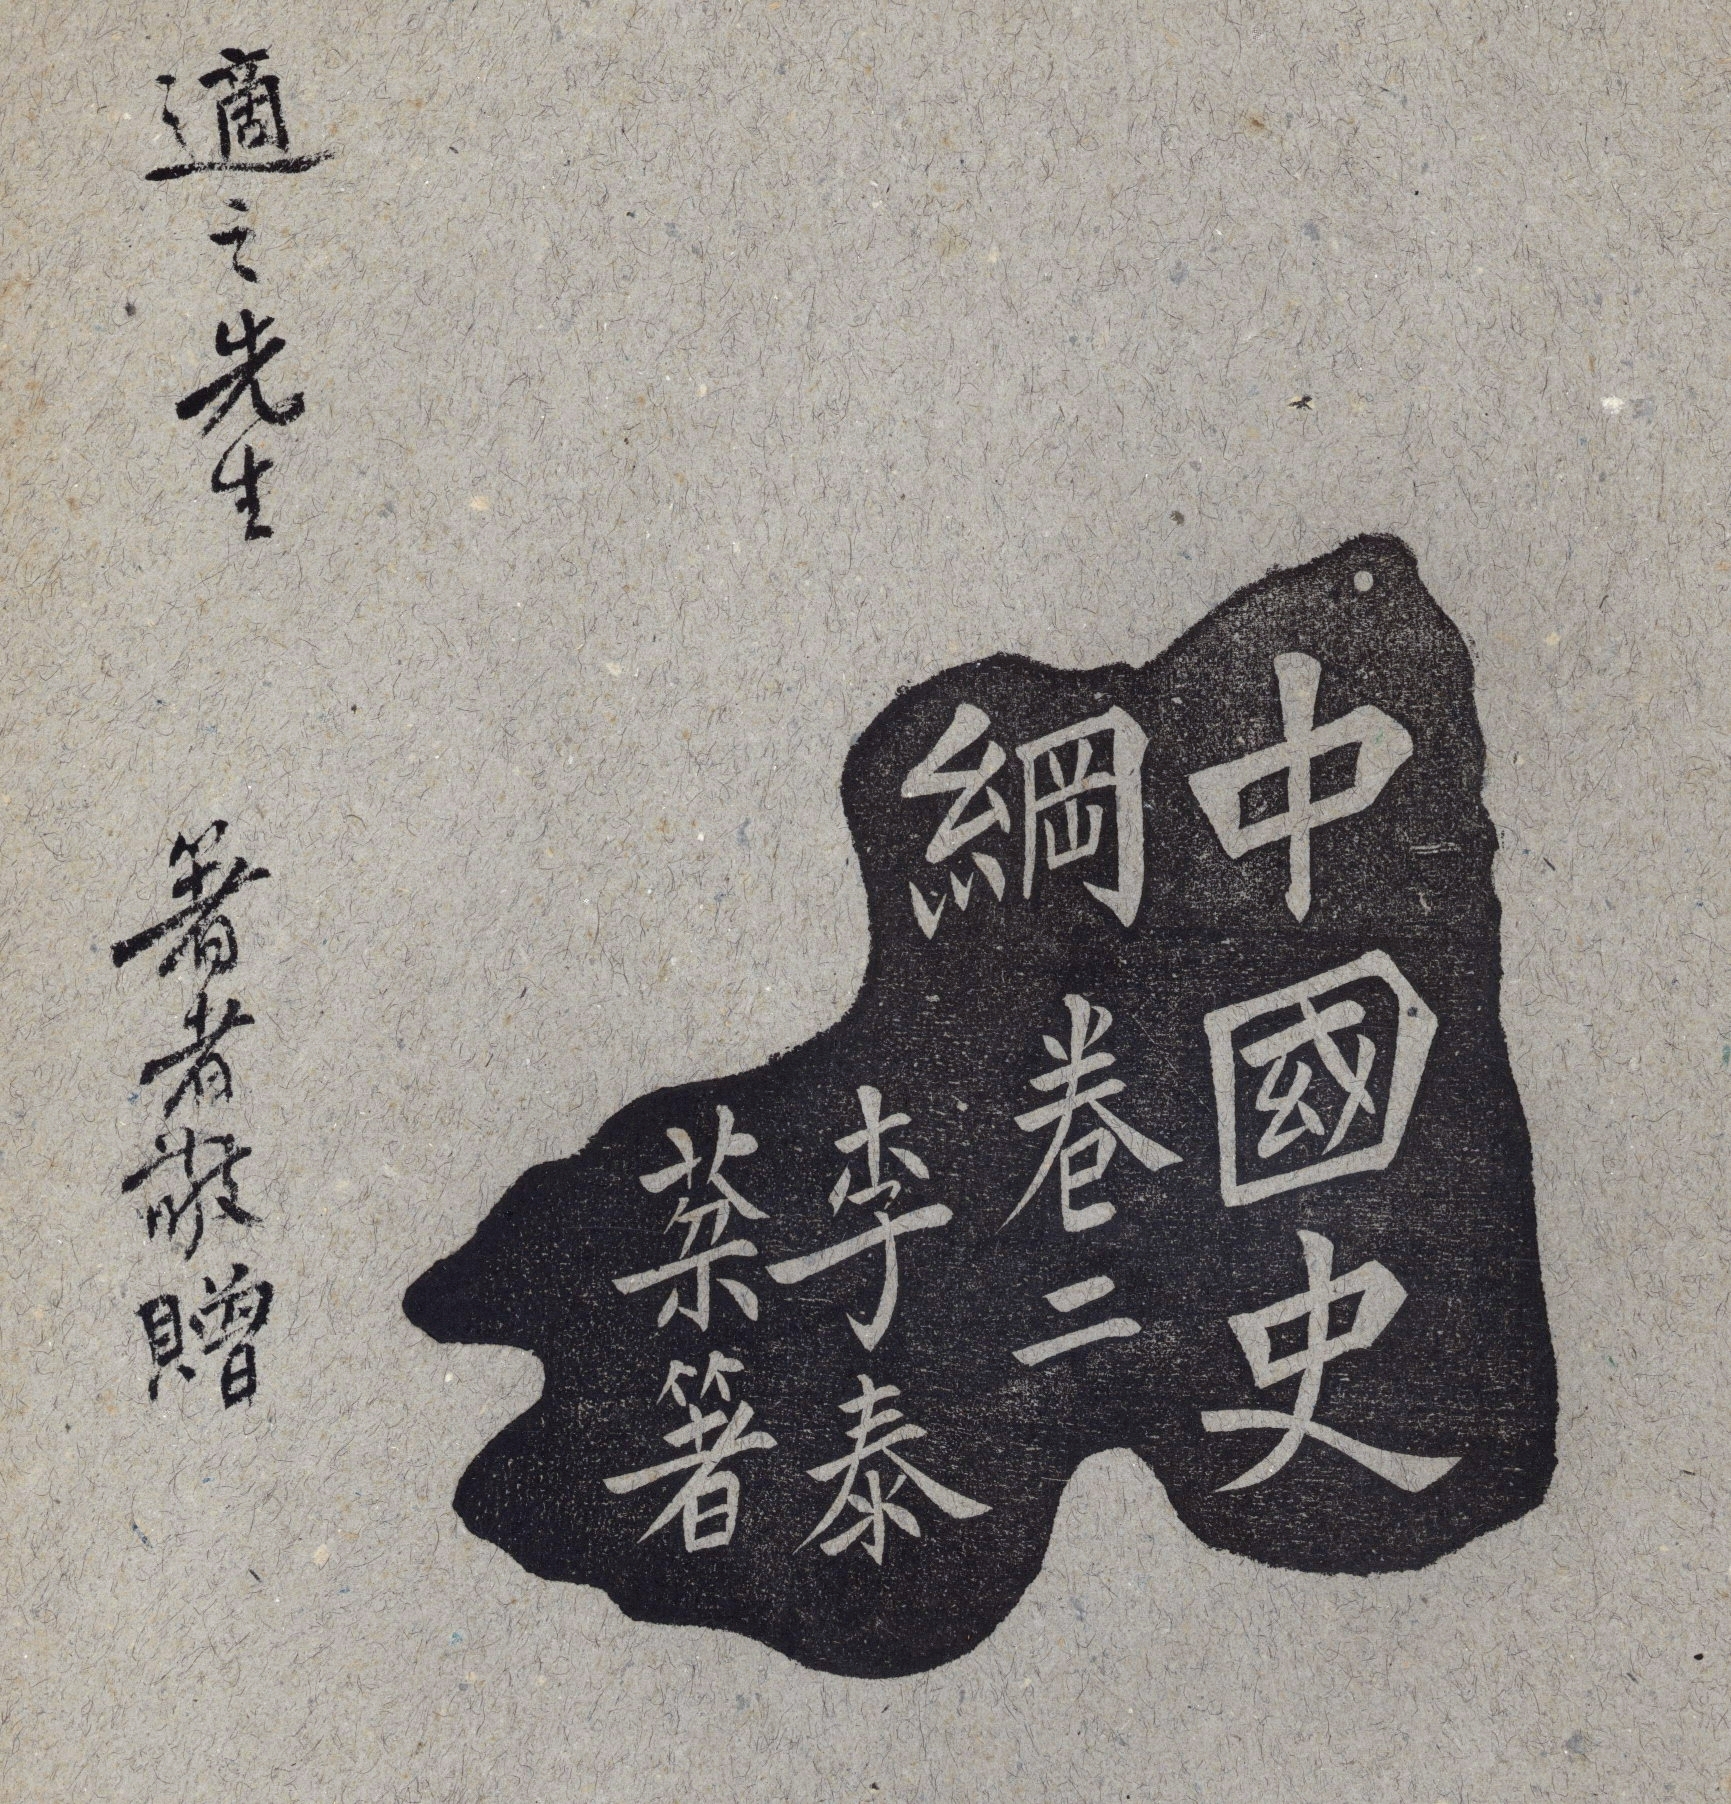 中國史
綱 卷二
李泰
棻著
適之先生
著者敬贈